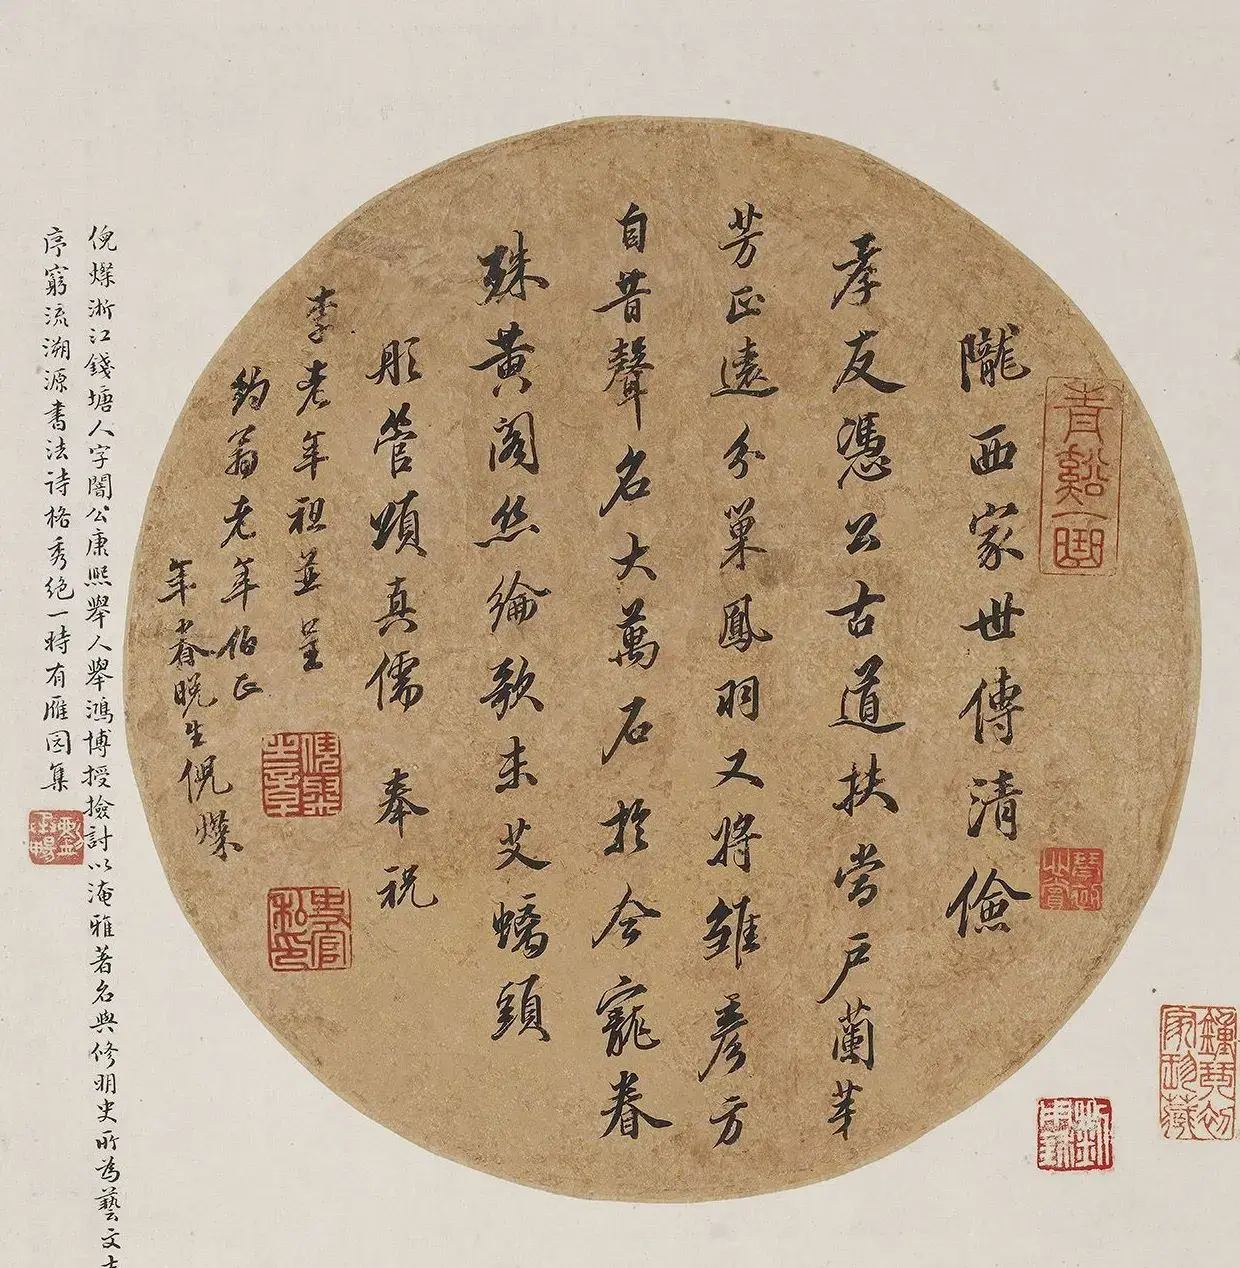 青谿一曲
隴西家世傳清儉
孝友憑公古道扶當戶蘭芽
芳正遠分巢鳳羽又將雛彥方
自昔聲名大萬石於今寵眷
殊黃閣絲綸歌未艾螭頭
彤管頌真儒 奉祝
李老年祖並呈
鈞翁老年伯正
年眷晚生倪燦
倪燦之印
史官私印
倪燦浙江錢塘人字闇公康熙舉人舉鴻博授撿討以淹雅著名與修明史所為藝文
序窮流溯源書法詩格秀絕一時有雁园集
鍾琴初家珍藏